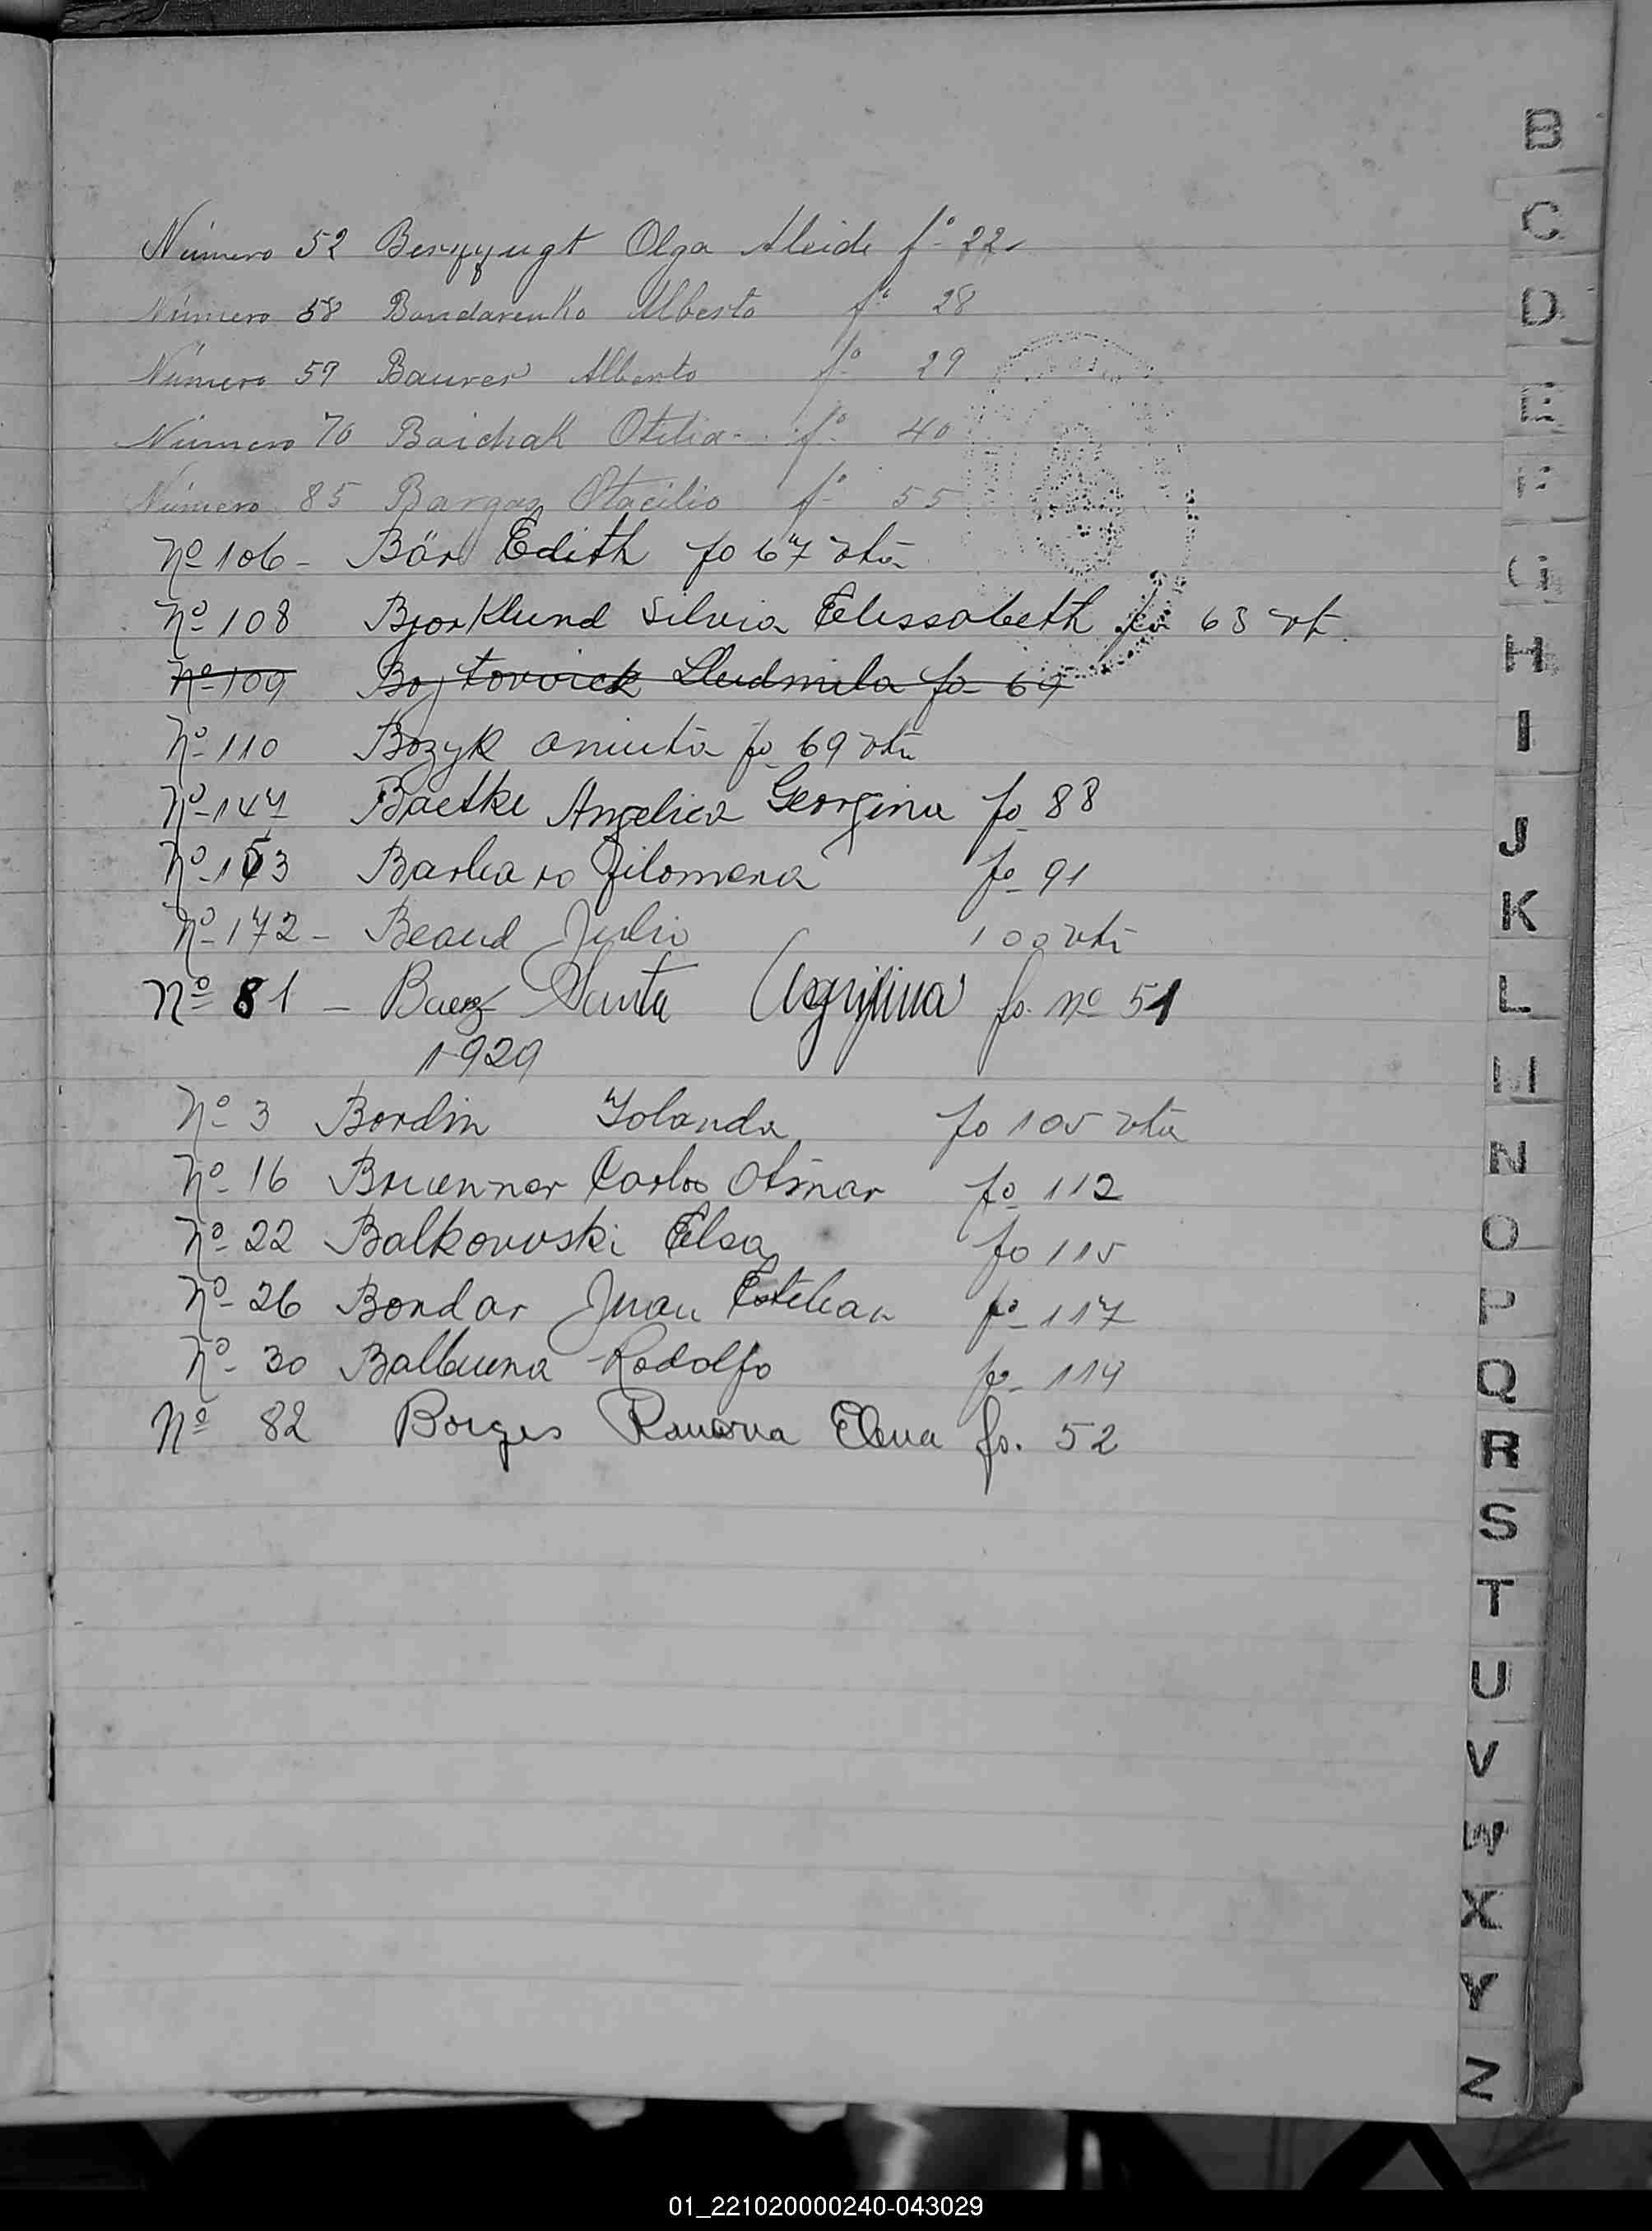 Número 52 Olga Aleide fº 22
Número 58 Bondarenko Alberto fº 28
Número 59 Baurer Alberto fº 29
Número 70 Boichak Otilia fº 40
Número 85 Bargas Otacilio fº 55
Nº 106 - Bär Edith fo 67 vta
Nº 108 Bjorklund Silvia Elissabeth fo 68 vt.
Nº 109 Bojtovvick Lludmila fo 69
Nº 110 Bozyk aniuta fo 69 vta
Nº 147 Baetke Angelica Georgina fo 88
Nº 153 Barbaro Filomena fo 91
Nº 172 - Beaud Julio 100 vta
Nº 81 - Baez Santa Agrifina fo. Nº 51
1929
Nº 3 Bordin Yolanda fo 105 vta
Nº 16 Bruenner Carlos Otmar fo 112
Nº 22 Balkovvski Elsa fo 115
Nº 26 Bondar Juan Esteban fo 117
Nº 30 Balbuena Rodolfo fo 119
Nº 82 Borges Ramona Elena fo. 52
B
C
D
E
F
G
H
I
J
K
L
M
N
O
P
Q
R
S
T
U
V
W
X
Y
Z
01_221020000240-043029